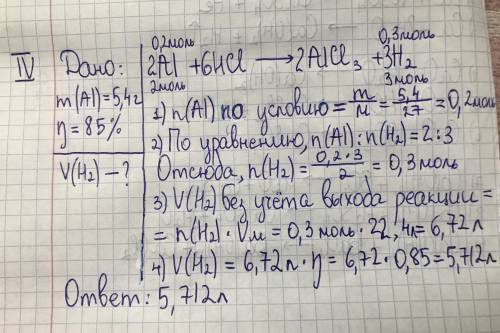 IV Дано:
m(Al)=5,4г
η=85%
V(H₂) — ?
0,2моль 0,3моль
2Al +6HCl ⟶ 2AlCl₃ +3H₂
2моль 3моль
1) n(Al) по условию = m/M = 5,4/27 = 0,2моль
2) По уравнению, n(Al):n(H₂)=2:3
Отсюда, n(H₂)= 0,2·3/2 = 0,3 моль
3) V(H₂) без учёта выхода реакции =
= n(H₂)·Vм = 0,3 моль·22,4л = 6,72л
4) V(H₂) = 6,72л·η = 6,72·0,85=5,712л
Ответ: 5,712л